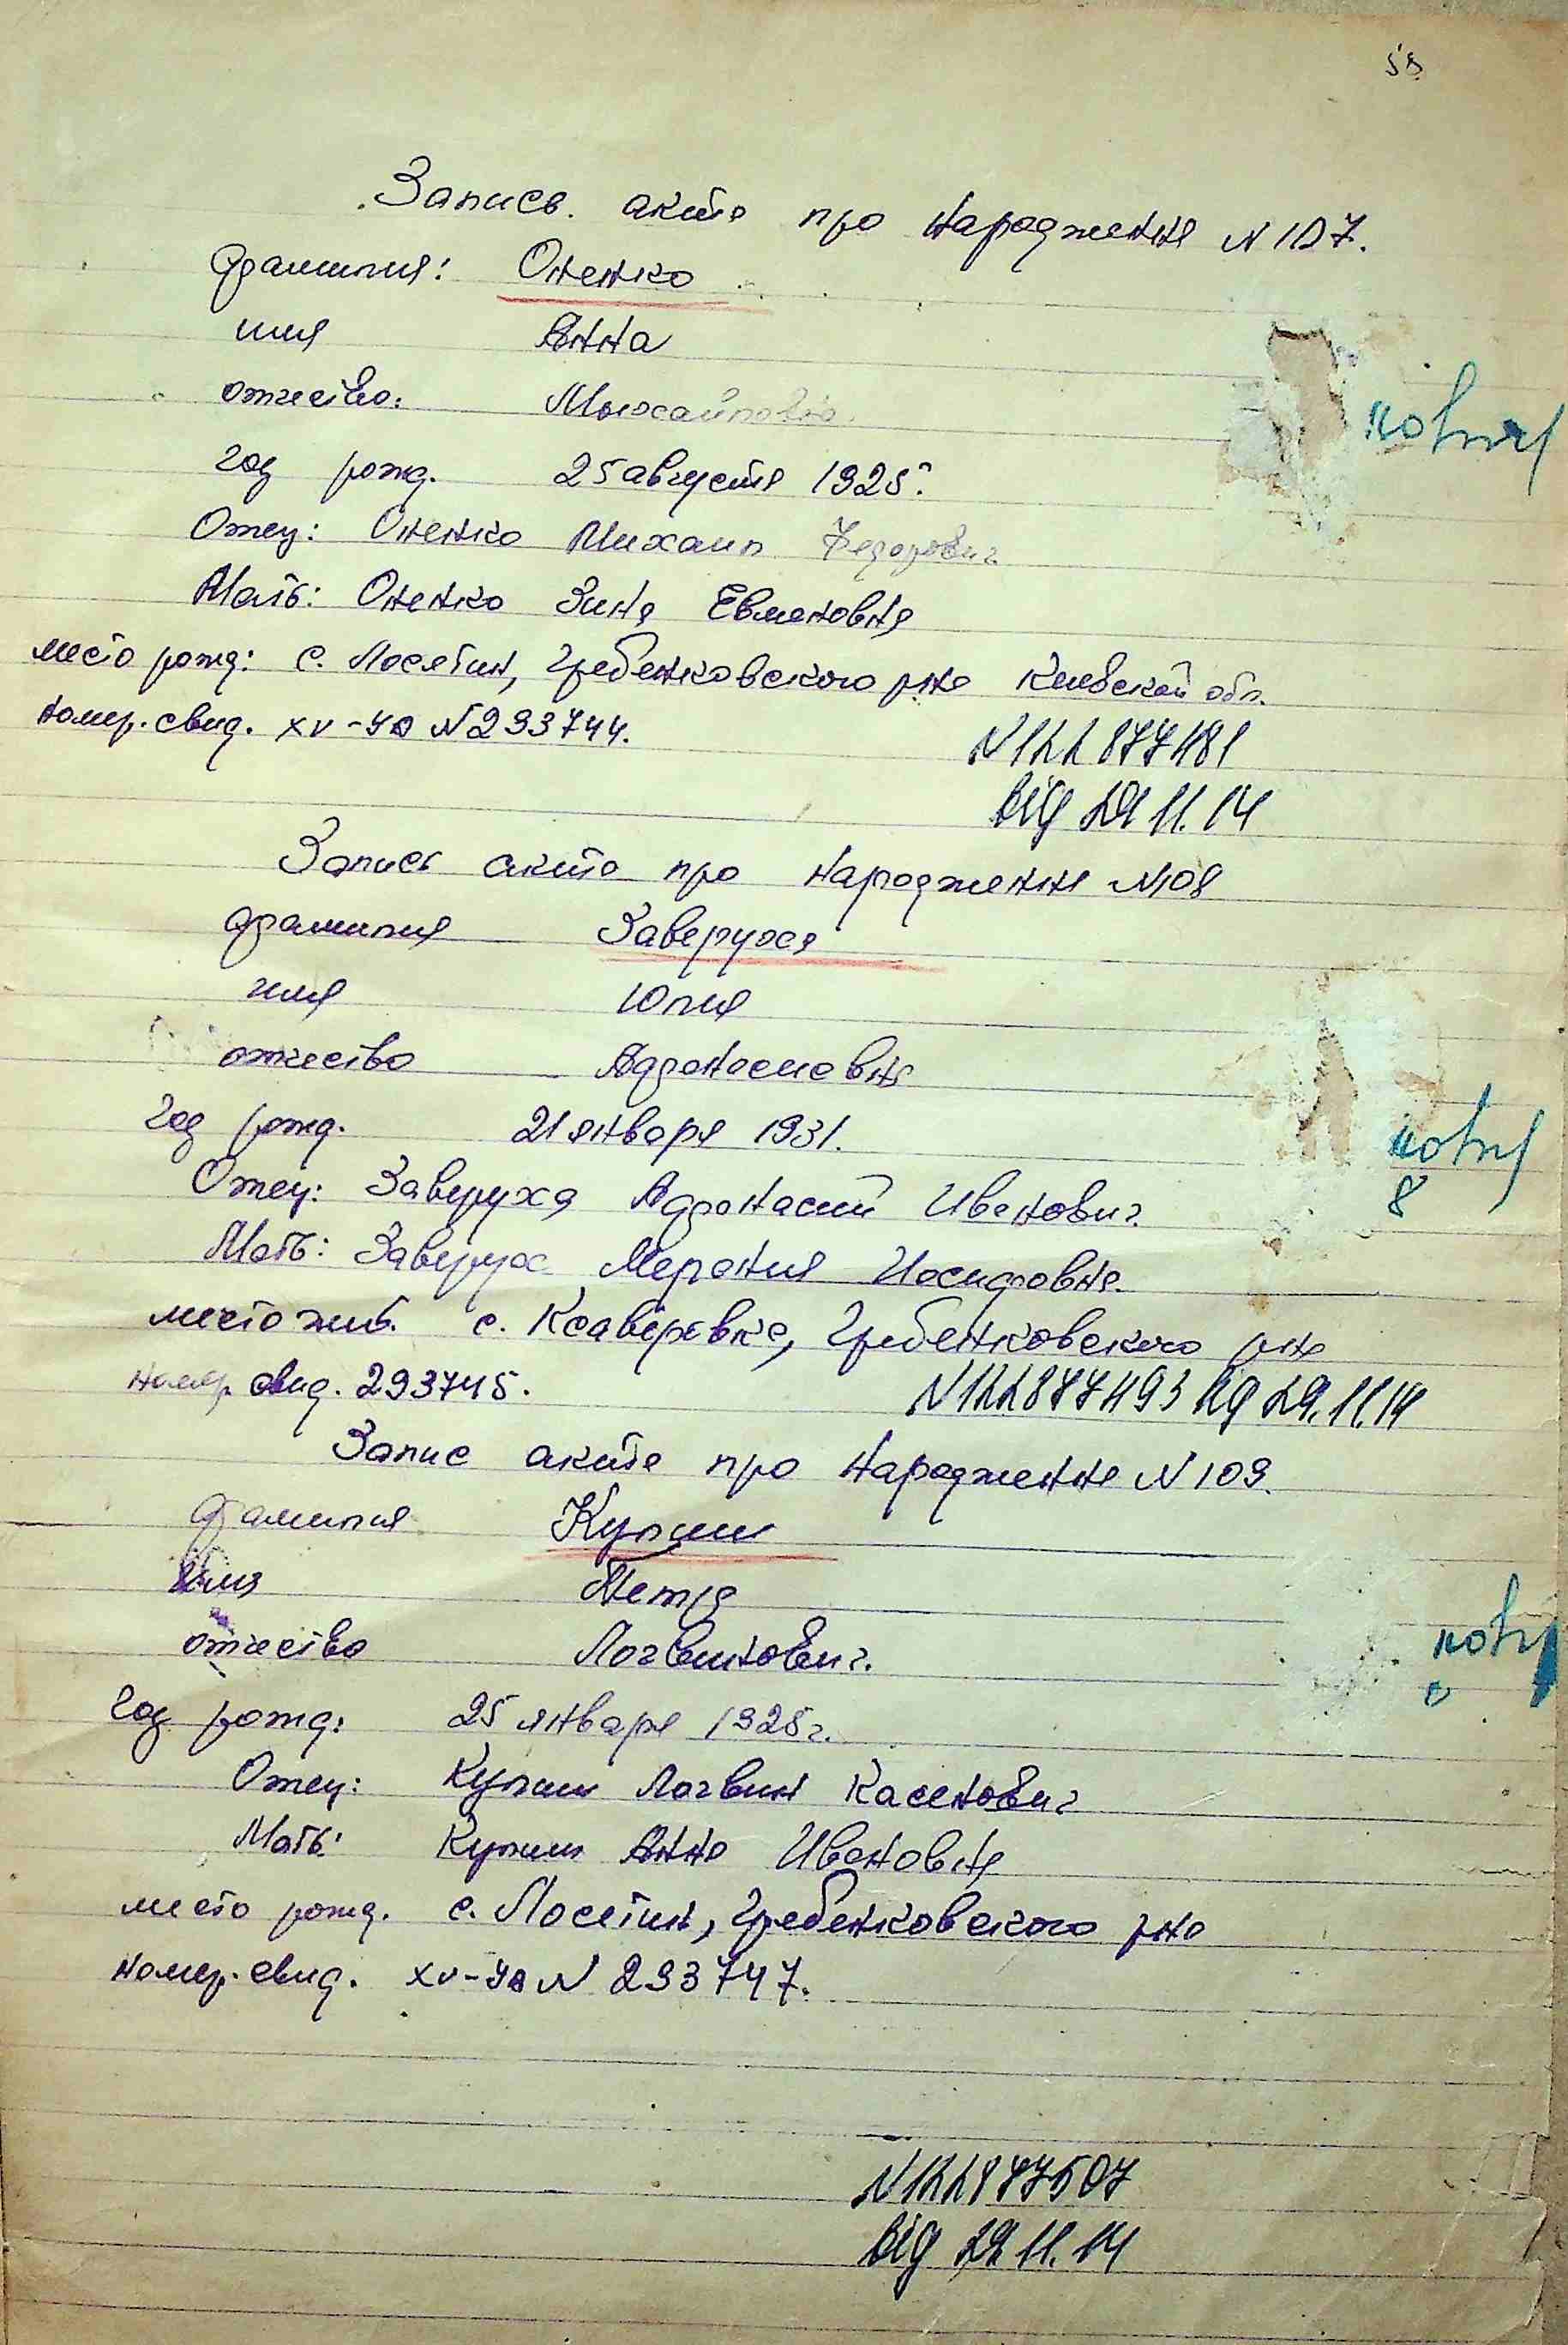 58
Запись акта про народження N 107.
фамилия: Оненко
имя Анна
отчество: Михайловна
год рожд. 25 августа 1925г.
Отец: Оненко Михаил Федорович
Мать: Оненко Зина Евменовна
место рожд: с. Лосятин, Гребенковского р-на Киевской обл.
номер. свид. XV-УЯ N 293744.
N 122877481
від 29 11. 14
Запись акта про народження N108
фамилия Заверуха
имя Юлия
отчество Афанасиевна
год рожд. 21 января 1931.
Отец: Заверуха Афанасий Иванович
Мать: Заверуха Мелания Иосифовна.
место жит. с. Ксаверовка, Гребенковского р-на
номер свид. 293745.
N122877493 від 29.11.14
Запис акта про народження N 109.
фамилия Кулиш
имя Петр
отчество Логвинович.
год рожд: 25 января 1928г.
Отец: Кулиш Логвин Касенович
Мать: Кулиш Анна Ивановна
место рожд. с. Лосятин, Гребенковского р-на
номер. свид. XV-УЯ N 293747.
N122877507
від 29 11. 14